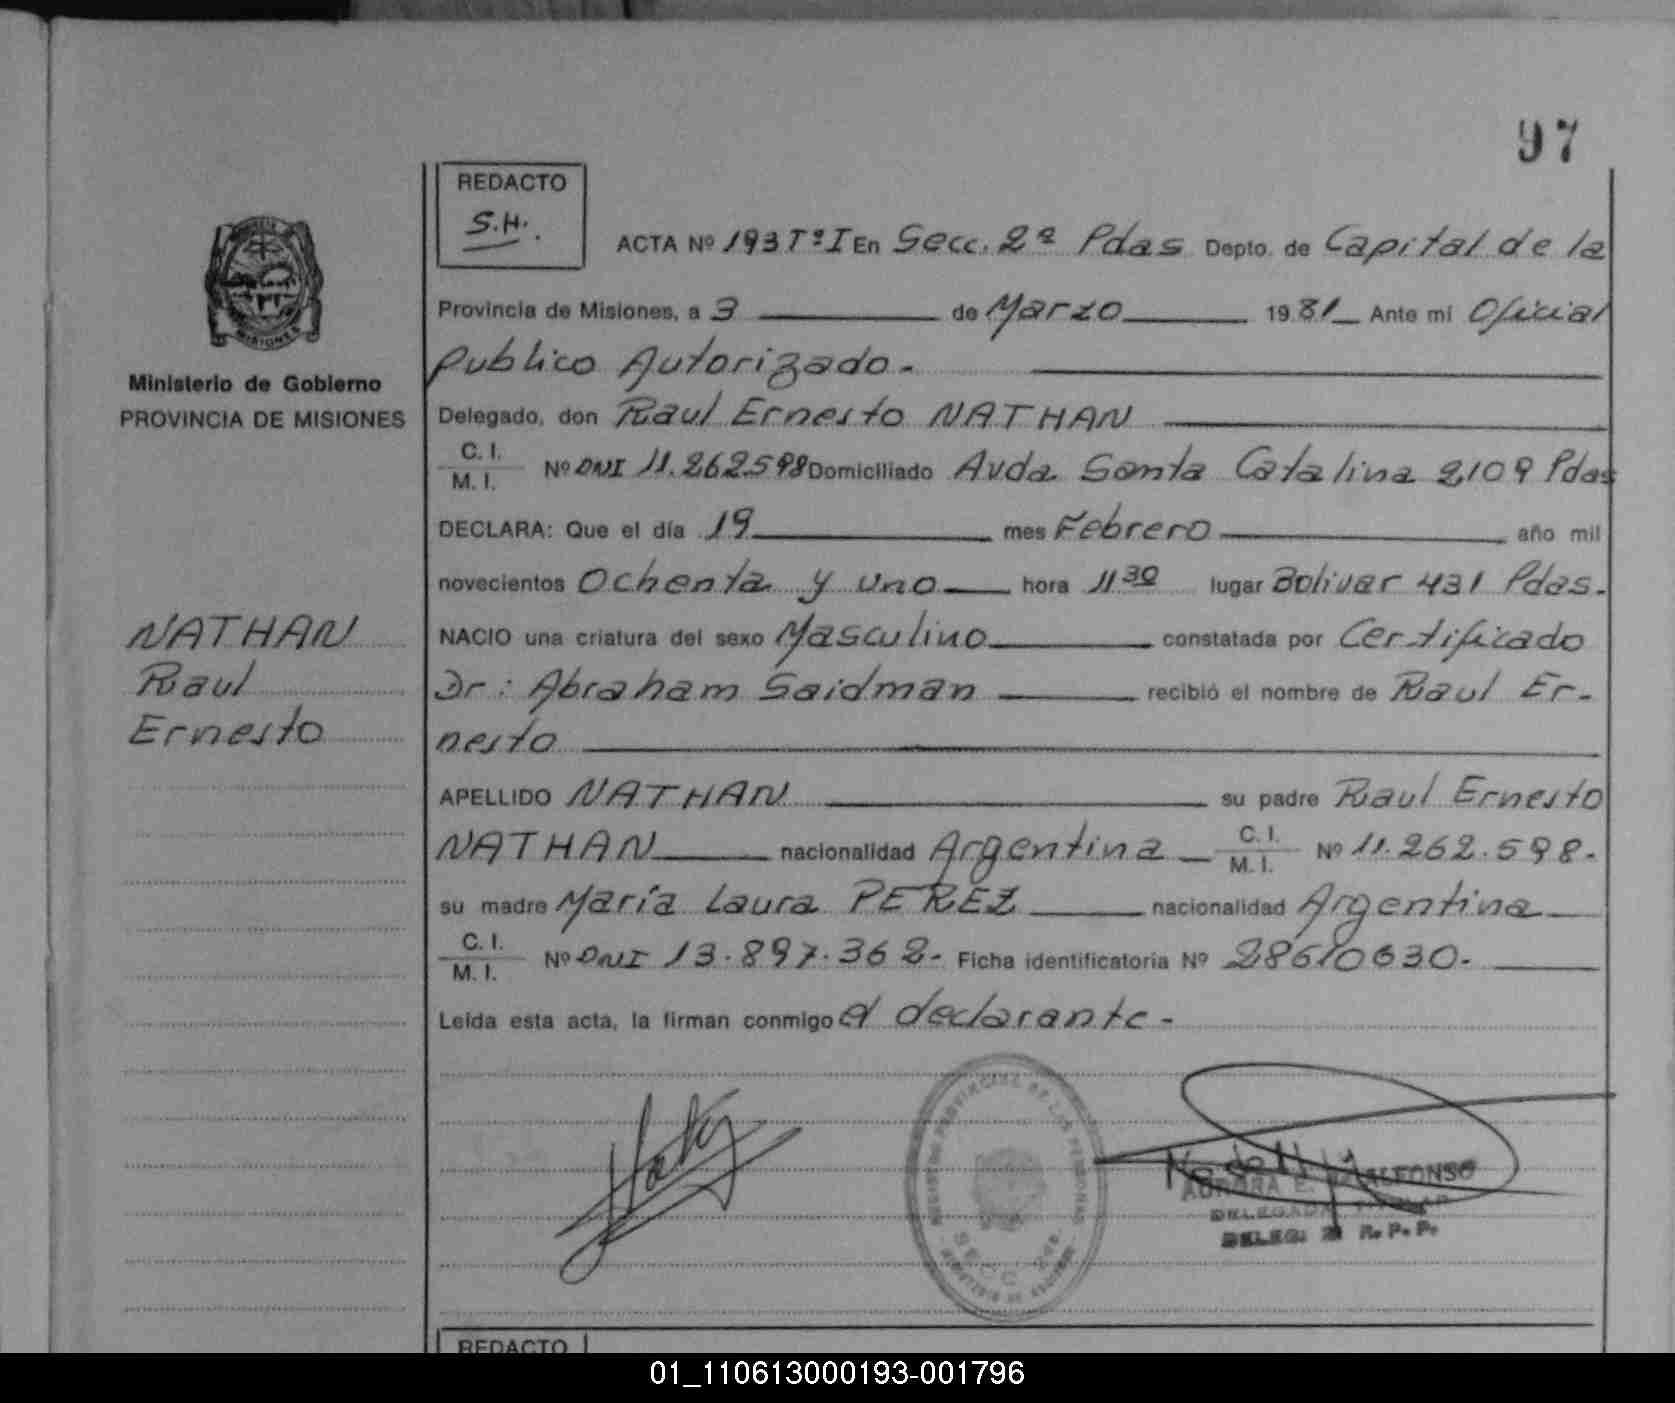 97
REDACTO
S.H.
ACTA Nº 193 Tº I En Secc. 2ª Pdas Depto. de Capital de la
Provincia de Misiones, a 3 de Marzo 1981 Ante mi Oficial
Publico Autorizado.
Delegado, don Raul Ernesto NATHAN
C. I.
M. I. Nº DNI 11.262.598 Domiciliado Avda Santa Catalina 2109 Pdas
DECLARA: Que el día 19 mes Febrero año mil
novecientos Ochenta y uno hora 11 30 lugar Bolivar 431 Pdas.
NACIO una criatura del sexo Masculino constatada por Certificado
Dr: Abraham Saidman recibió el nombre de Raul Er-
nesto
APELLIDO NATHAN su padre Raul Ernesto
NATHAN nacionalidad Argentina C. I. M. I. Nº 11.262.598.
su madre María Laura PEREZ nacionalidad Argentina
C. I.
M. I. Nº DNI 13.897.362. Ficha identificatoria Nº 28610630.
Leída esta acta, la firman conmigo el declarante-
MISIONES
Ministerio de Gobierno
PROVINCIA DE MISIONES
NATHAN
Raul
Ernesto
REGISTRO PROVINCIAL DE LAS PERSONAS
SECC. 2da.
AURORA E. ALFONSO
DELEGADA TITULAR
DELEG. 2ª R.P.P.
REDACTO
01_110613000193-001796